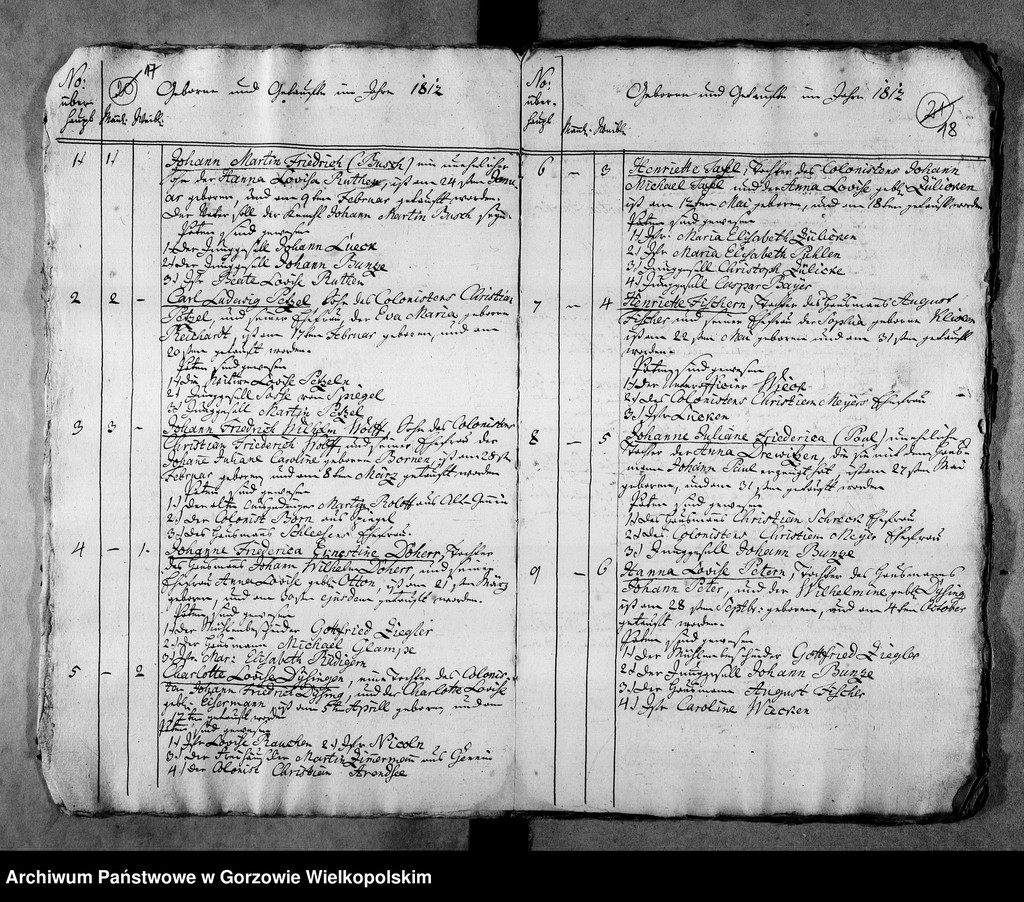 No: über- haupt
Männl: Weibl:
20 17
Geborne und Getaufte im Jahre 1812
1. 1.
Johann Martin Friedrich (Busch) ein unehelicher
Sohn der Hanna Lovisa Ruthen, ist am 24sten Janu-
ar geboren, und am 9ten Februar getauft worden
Der Vater soll der Johann Martin Busch seyn
Paten sind gewesen
1.) der Junggesell Johann Lueck
2.) der Junggesell Johann Bunze
3.) Jfr Beate Lovise Ruthen
2 2 -
Carl Ludewig Petzel Sohn des Colonistens Christian
Petzel und seiner Ehefrau, der Eva Maria geboren
Reichardt, ist am 17ten Februar geboren, und am
20sten getauft worden.
Paten sind gewesen
1.) die Wittwe Lovise Petzeln
2.) Junggesell aus Spiegel
3.) Junggesell Martin Petzel
3 3 -
Johann Friedrich Wilhelm Wolff, Sohn des Colonistens
Christian Friederich Wolff und seiner Ehefrau der
Johane Juliane Caroline geboren Bornen, ist am 28sten
Februar geboren und am 8ten März getauft worden
Paten sind gewesen
1.) der Martin Roloff aus Alt Gennin
2.) der Colonist Born aus Spiegel
3.) des Hausmans Schleesens Ehefrau.
4 - 1.
Johanne Friederica Ernestine Döherr, Tochter
des Hausmans Johann Wilhelm Döherr, und seiner
Ehefrau Anna Lovise geb: Otton, ist am 21sten März
geboren, und am 30sten ejusdem getauft worden.
Paten sind gewesen
1.) der Gottfried Ziegler
2.) der Hausmann Michael Glampe
3.) Jfr Mar: Elisabeth Rüdigern
5 - 2
Charlotte Lovise Dysingen, eine Tochter des Colonis-
ten Johann Friedrich Dysing, und der Charlotte Lovise
geb: Eisermann ist am 5ten Aprill geboren, und am
getauft worden
Paten sind gewesen
1.) Jfr Lovise Rauchen 2.) Jfr Nicoln
3.) der Martin Zimermann aus Gennin
4.) der Colonist Christian Arendsee
No: über- haupt
Männl: Weibl:
Geborne und Getaufte im Jahre 1812
21 18
6 - 3
Henriette Tafel, Tochter des Colonistens Johann
Michael Tafel und der Anna Lovise geb: Zülicken
ist am 12ten Mai geboren, und am 18ten getauft worden
Paten sind gewesen
1.) Jfr Maria Elisabeth Zülicken
2.) Jfr Maria Elisabeth
3.) Junggesell Christoph Zülicke
4.) Junggesell Caspar Bayer
7 - 4
Henriette Fischern, Tochter des Hausmans August
Fischer und seiner Ehefrau der Sophia geborne
ist am 22sten Mai geboren und am 31sten getauft
worden.
Paten sind gewesen
1.) der Unterofficier Wieck
2.) des Colonistens Christian Meyers Ehefrau
3.) Jfr Lücken
8 - 5
Johanne Juliane Friederica (Paul) uneheliche
Tochter der Anna Drewitzen, die sie mit dem Haus-
mann Johann Paul erzeugt hat, ist am 27sten Mai
geboren, und am 31sten getauft worden
Paten sind gewesen
1.) des Hausmans Christian Schreck Ehefrau
2.) des Colonistens Christian Meyer Ehefrau
3.) Junggesell Johann Bunze
9 - 6
Hanna Lovise Petern, Tochter des Hausmanns
Johann Peter, und der Wilhelmine geb: Dysing
ist am 28sten Septbr: geboren, und am 4ten October
getauft worden.
Paten sind gewesen
1.) der Gottfried Ziegler
2.) der Junggesell Johann Bunze
3.) der Hausmann August Fischer
4.) Jfr Caroline Wiecken
Archiwum Państwowe w Gorzowie Wielkopolskim